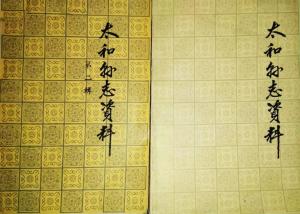 太和县志资料
第二辑
太和县志资料